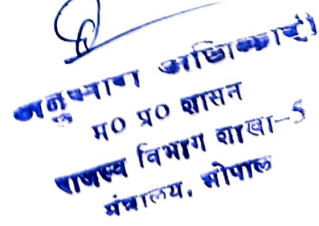 अनुभाग अधिकारी
म0 प्र0 शासन
राजस्व विभाग शाखा-5
मंत्रालय, भोपाल